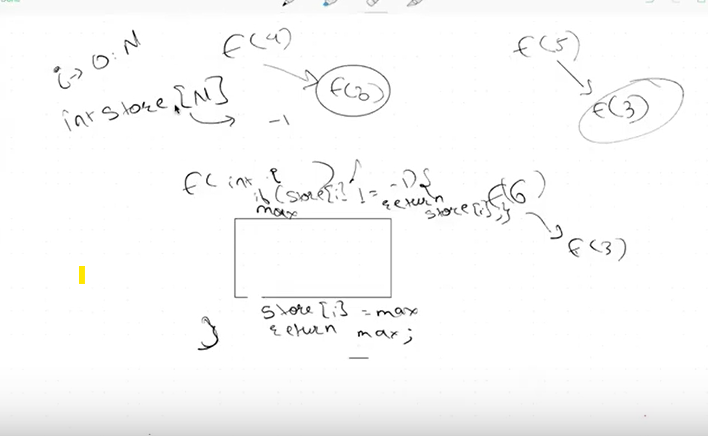 i→ 0:N
int store[N] → -1
f(4)
f(3)
f(5)
f(3)
f( int i ) {
if (store[i] != -1) {
return store[i]; }
max
f(6)
f(3)
store[i] = max
return max;
}